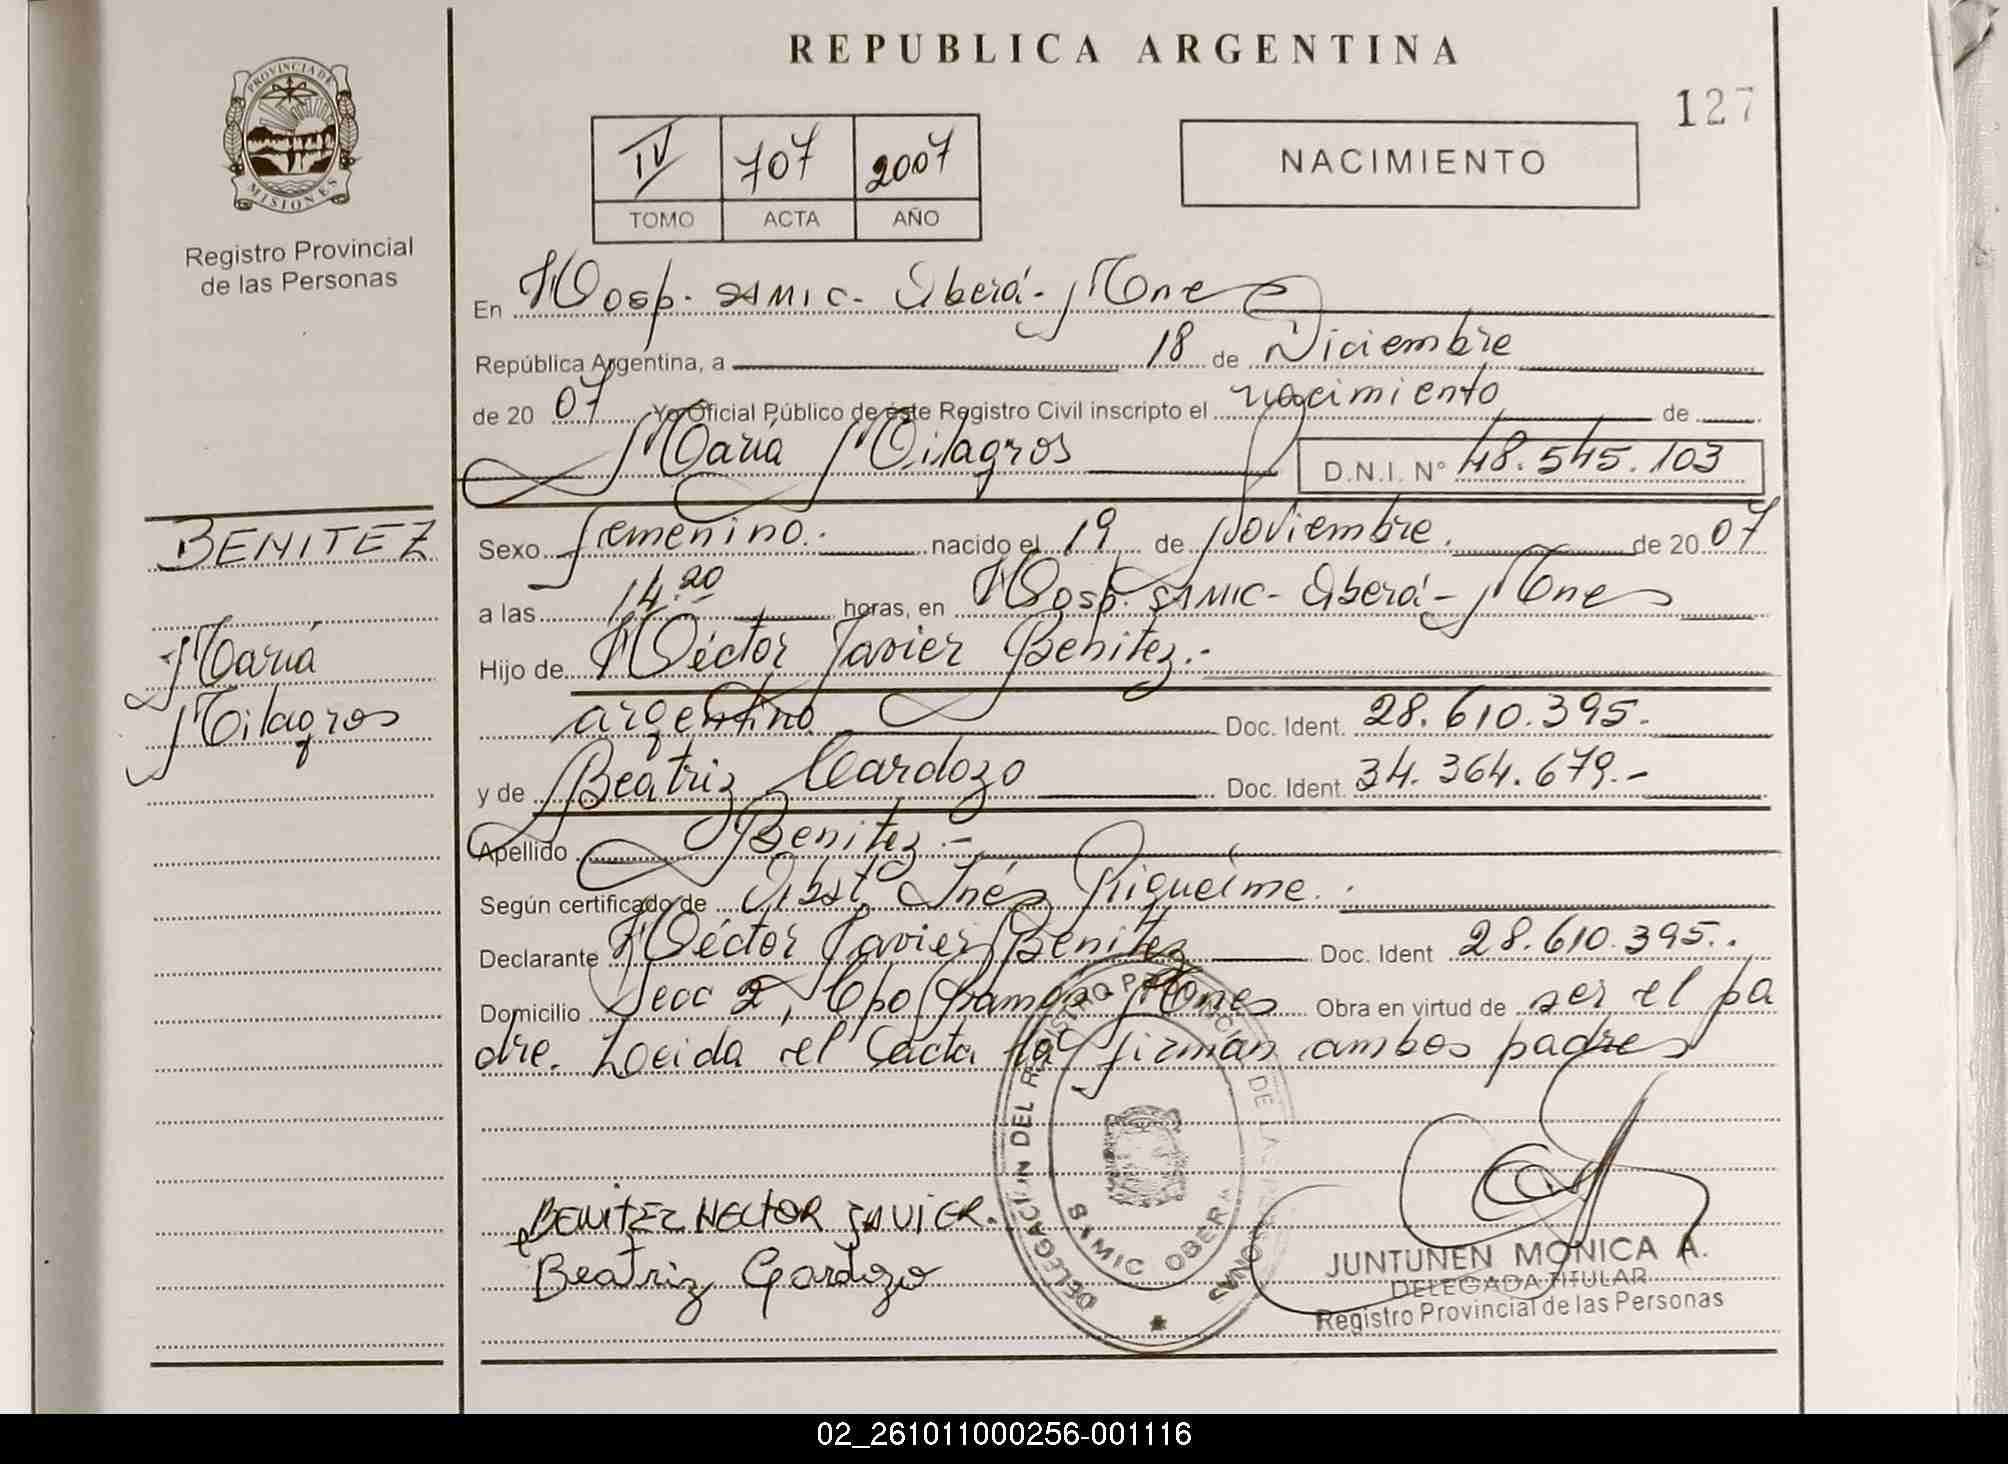 REPUBLICA ARGENTINA
127
PROVINCIA DE
MISIONES
Registro Provincial
de las Personas
IV 707 2007
TOMO ACTA AÑO
NACIMIENTO
En Hosp. SAMIC - Oberá - Mnes
República Argentina, a 18 de Diciembre
de 20 07 Yo Oficial Público de éste Registro Civil inscripto el nacimiento de
María Milagros D.N.I. Nº 48.545.103
BENITEZ
María
Milagros
Sexo femenino. nacido el 19 de Noviembre. de 20 07
a las 14.20 horas, en Hosp. SAMIC - Oberá - Mnes
Hijo de Héctor Javier Benitez.-
argentino Doc. Ident. 28.610.395.
y de Beatriz Cardozo Doc. Ident. 34.364.679.-
Apellido Benitez.-
Según certificado de Obst. Inés Riquelme.
Declarante Héctor Javier Benitez Doc. Ident 28.610.395.
Domicilio Secc 2, Cpo Mnes Obra en virtud de ser el pa
dre. Leida el acta la firman ambos padres
DELEGACION DEL REGISTRO PROVINCIAL DE LAS PERSONAS
SAMIC OBERA
BENITEZ HECTOR JAVIER.
Beatriz Cardozo
JUNTUNEN MONICA A.
DELEGADA TITULAR
Registro Provincial de las Personas
02_261011000256-001116